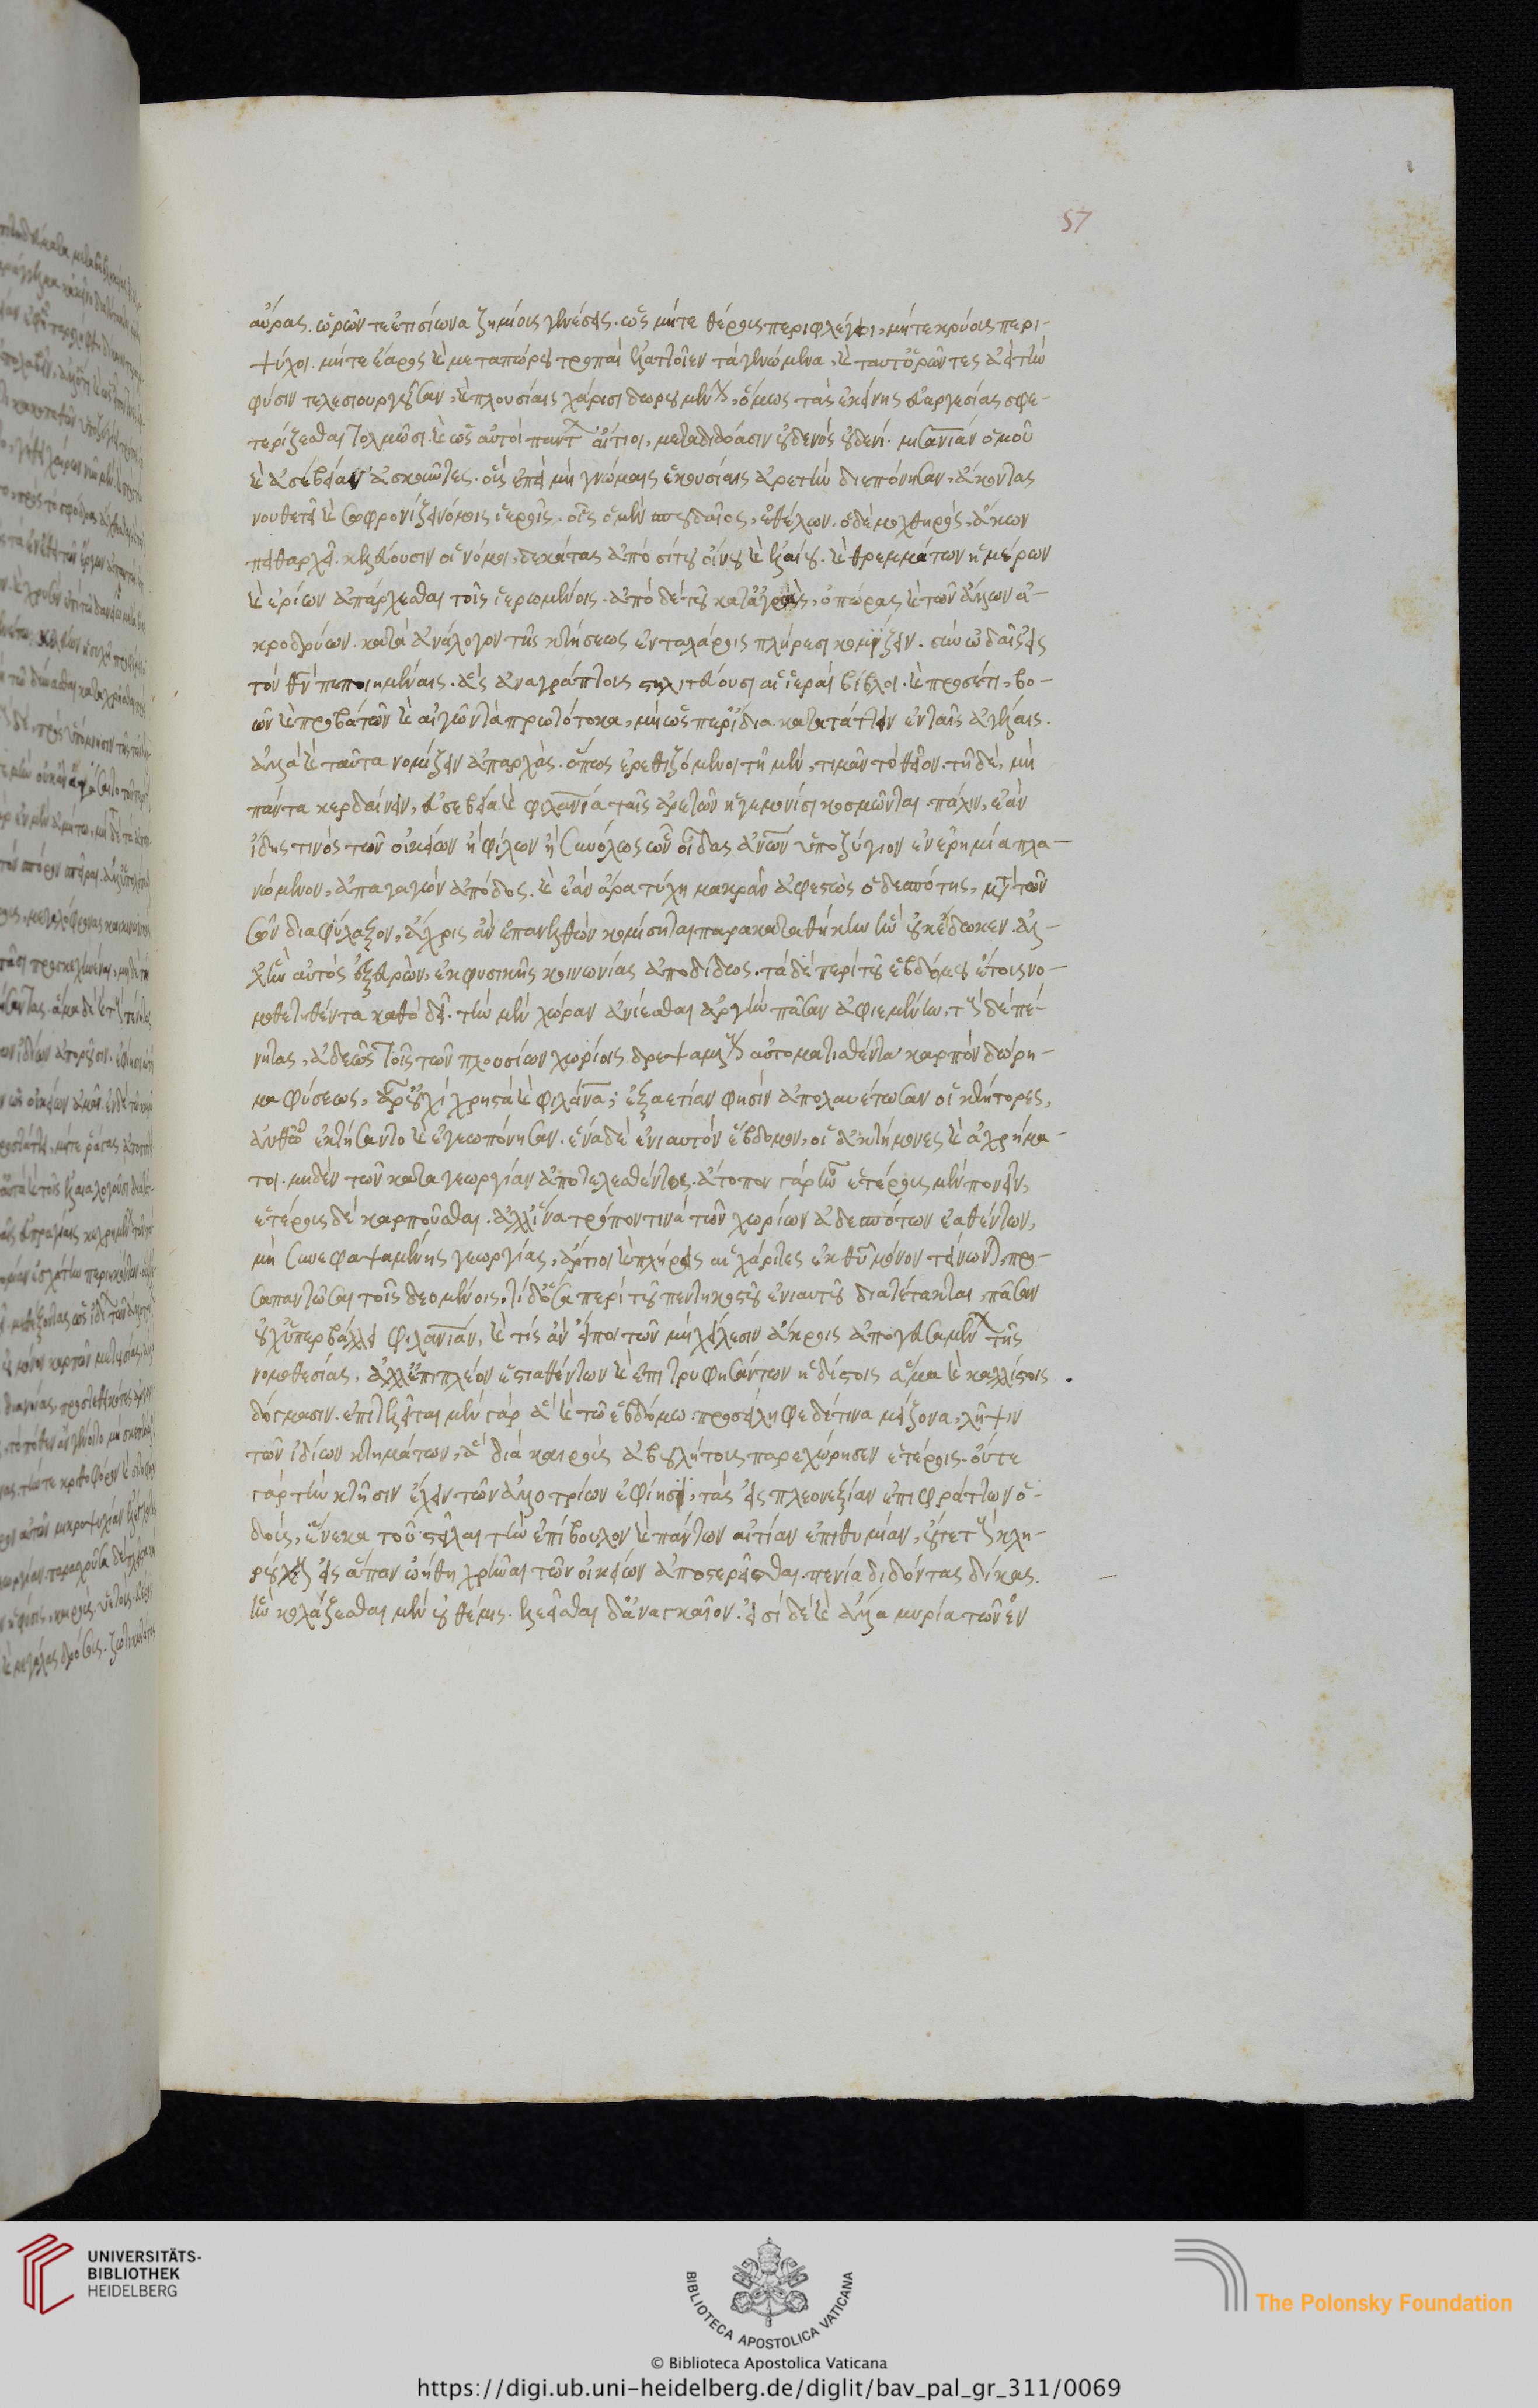 αὔρας. ὡρῶν τε ἐτισίων ἀζημίοις γενέσεις. ὡς μήτε θέρος περιφλέγοι, μήτε κρύος περι-
ψύχοι. μήτε ἔαρος καὶ μεταπώρου τροπαὶ βλάπτοιεν τὰ γενώμενα, καὶ ταυτ' ὁρῶντες ἀεὶ τὴν
φύσιν τελεσιουργοῦσαν, καὶ πλουσίαις χάρισι δωρουμένην, ὅμως τὰς ἐκείνης εὐεργεσίας σφε-
τερίζεσθαι τολμῶσι. καὶ ὡς αὐτοὶ πάντων αἴτιοι, μεταδιδόασιν οὐδενὸς οὐδενί. μισανιαν ὁμοῦ
καὶ ἀσέβειαν ἀσκοῦντες. οἷς ἐπεὶ μὴ γνώμαις ἑκουσίαις ἀρετὴν διεπόνησαν, ἄκοντας
νουθετεῖ καὶ σωφρονίζει νόμοις ἱεροῖς. οἷς ὁ μὲν σπουδαῖος, ἐθέλων. ὁ δὲ μοχθηρὸς, ἄκων
πειθαρχεῖ. κελεύουσιν οἱ νόμοι, δεκάτας ἀπὸ σίτου οἴνου καὶ ἐλαίου. καὶ θρεμμάτων ἡμέρων
καὶ ἐρίων ἀπάρχεσθαι τοῖς ἱερωμένοις. ἀπὸ δὲ τῆς κατ' ἀγροὺς, ὀπώρας καὶ τῶν ἄλλων ἀ-
κροδρύων. κατὰ ἀνάλογον τῆς κτήσεως ἐν ταλάροις πλήρεσι κομίζειν. σὺν ᾠδαῖς εἰς
τὸν θν πεποιημέναις. ἃς ἀναγράπτους στηλιτεύουσι αἱ ἱεραὶ βίβλοι. καὶ προσέτι, βο-
ῶν καὶ προβάτων καὶ αἰγῶν τὰ πρωτότοκα, μὴ ὡς περ ἴδια κατατάττειν ἐν ταῖς ἀγέλαις.
ἀλλὰ καὶ ταῦτα νομίζειν ἀπαρχὰς. ὅπως ἐρεθιζόμενοι τῇ μὲν, τιμᾶν τὸ θεῖον. τῇ δὲ, μὴ
πάντα κερδαίνειν, εὐσεβεία καὶ φιλανία ταῖς ἀρετῶν ἡγεμονίσι κοσμῶνται. πάλιν, ἐὰν
ἴδης τινὸς τῶν οἰκείων ἢ φίλων ἢ συνόλως ὧν οἶδας ἀνων ὑποζύγιον ἐν ἐρημία πλα-
νώμενον, ἀπαγαγὼν ἀπόδος. καὶ ἐὰν ἄρα τύχη μακρὰν ἀφεστὼς ὁ δεσπότης, μετὰ τῶν
σῶν διαφύλαξον, ἄχρις ἂν ἐπανελθὼν κομίσηται παρακαταθήκην ἣν οὐκ ἔδωκεν. ἀλ-
λ' ἣν αὐτὸς ἐξευρὼν, ἐκ φυσικῆς κοινωνίας ἀποδίδως. τὰ δὲ περὶ τοῦ ἑβδόμου ἔτους νο-
μοθετηθέντα καθὸ δεῖ. τὴν μὲν χώραν ἀνίεσθαι ἀργὴν πᾶσαν ἀφιεμένην, τοὺς δὲ πέ-
νητας, ἀδεῶς τοῖς τῶν πλουσίων χωρίοις δρεψαμένους αὐτοματισθέντα καρπὸν δώρη-
μα φύσεως, ἆρ' οὐχὶ χρηστὰ καὶ φιλάνα; ἑξαετίαν φησὶν ἀπολαυέτωσαν οἱ κλήτορες,
ἀνθ' ὧν ἐκτήσαντο καὶ ἐγεωπόνησαν. ἕνα δὲ ἐνιαυτὸν ἕβδομον, οἱ ἀκτήμονες καὶ ἀχρήμα-
τοι. μηδὲν τῶν κατα γεωργίαν ἀποτελεσθέντος. ἄτοπον γὰρ ἦν ἑτέροις μὲν πονεῖν,
ἑτέροις δὲ καρποῦσθαι. ἀλλ' ἵνα τρόπον τινὰ τῶν χωρίων ἀδεσπότων ἐαθέντων,
μὴ συνεφαψαμένης γεωργίας, ἄρτιοι καὶ πλήρεις αἱ χάριτες ἐκ θυ μόνου γένωνται, προ-
σαπαντῶσαι τοῖς δεομένοις. τί δ' ὅσα περὶ τοῦ πεντηκοστοῦ ἐνιαυτοῦ διατέτακται, πᾶσαν
οὐχ ὑπερβάλλει φιλανιαν, καὶ τίς ἂν εἴποι τῶν μὴ χείλεσιν ἄκροις ἀπογευσαμένων τῆς
νομοθεσίας, ἀλλ' ἐπιπλέον ἑστιαθέντων καὶ ἐπιτρυφησάντων ἡδίστοις ἅμα καὶ καλλίστοις
δόγμασιν. ἐπιτελεῖται μὲν γὰρ ἃ καὶ τῷ ἑβδόμω. προσείληφε δέ τινα μείζονα, λῆψιν
τῶν ἰδίων κτημάτων, ἃ διὰ καιροὺς ἀβουλήτους παρεχώρησεν ἑτέροις. οὔτε
γὰρ τὴν κτῆσιν ἔχειν τῶν ἀλλοτρίων ἐφίησι, τὰς εἰς πλεονεξίαν ἐπιφράττων ὁ-
δοὺς, ἕνεκα τοῦ στεῖλαι τὴν ἐπίβουλον καὶ πάντων αἰτίαν ἐπιθυμίαν, οὔτε τοὺς κλη-
ρούχους εἰς ἅπαν ᾠήθη χρῆναι τῶν οἰκείων ἀποστερεῖσθαι. πενία διδόντας δίκας.
ἣν κολάζεσθαι μὲν οὐ θέμις. ἐλεεῖσθαι δ' ἀναγκαῖον. εἰσὶ δὲ καὶ ἄλλα μυρία τῶν ἐν
57
UNIVERSITÄTS-
BIBLIOTHEK
HEIDELBERG
BIBLIOTECA APOSTOLICA VATICANA
The Polonsky Foundation
© Biblioteca Apostolica Vaticana
https://digi.ub.uni-heidelberg.de/diglit/bav_pal_gr_311/0069